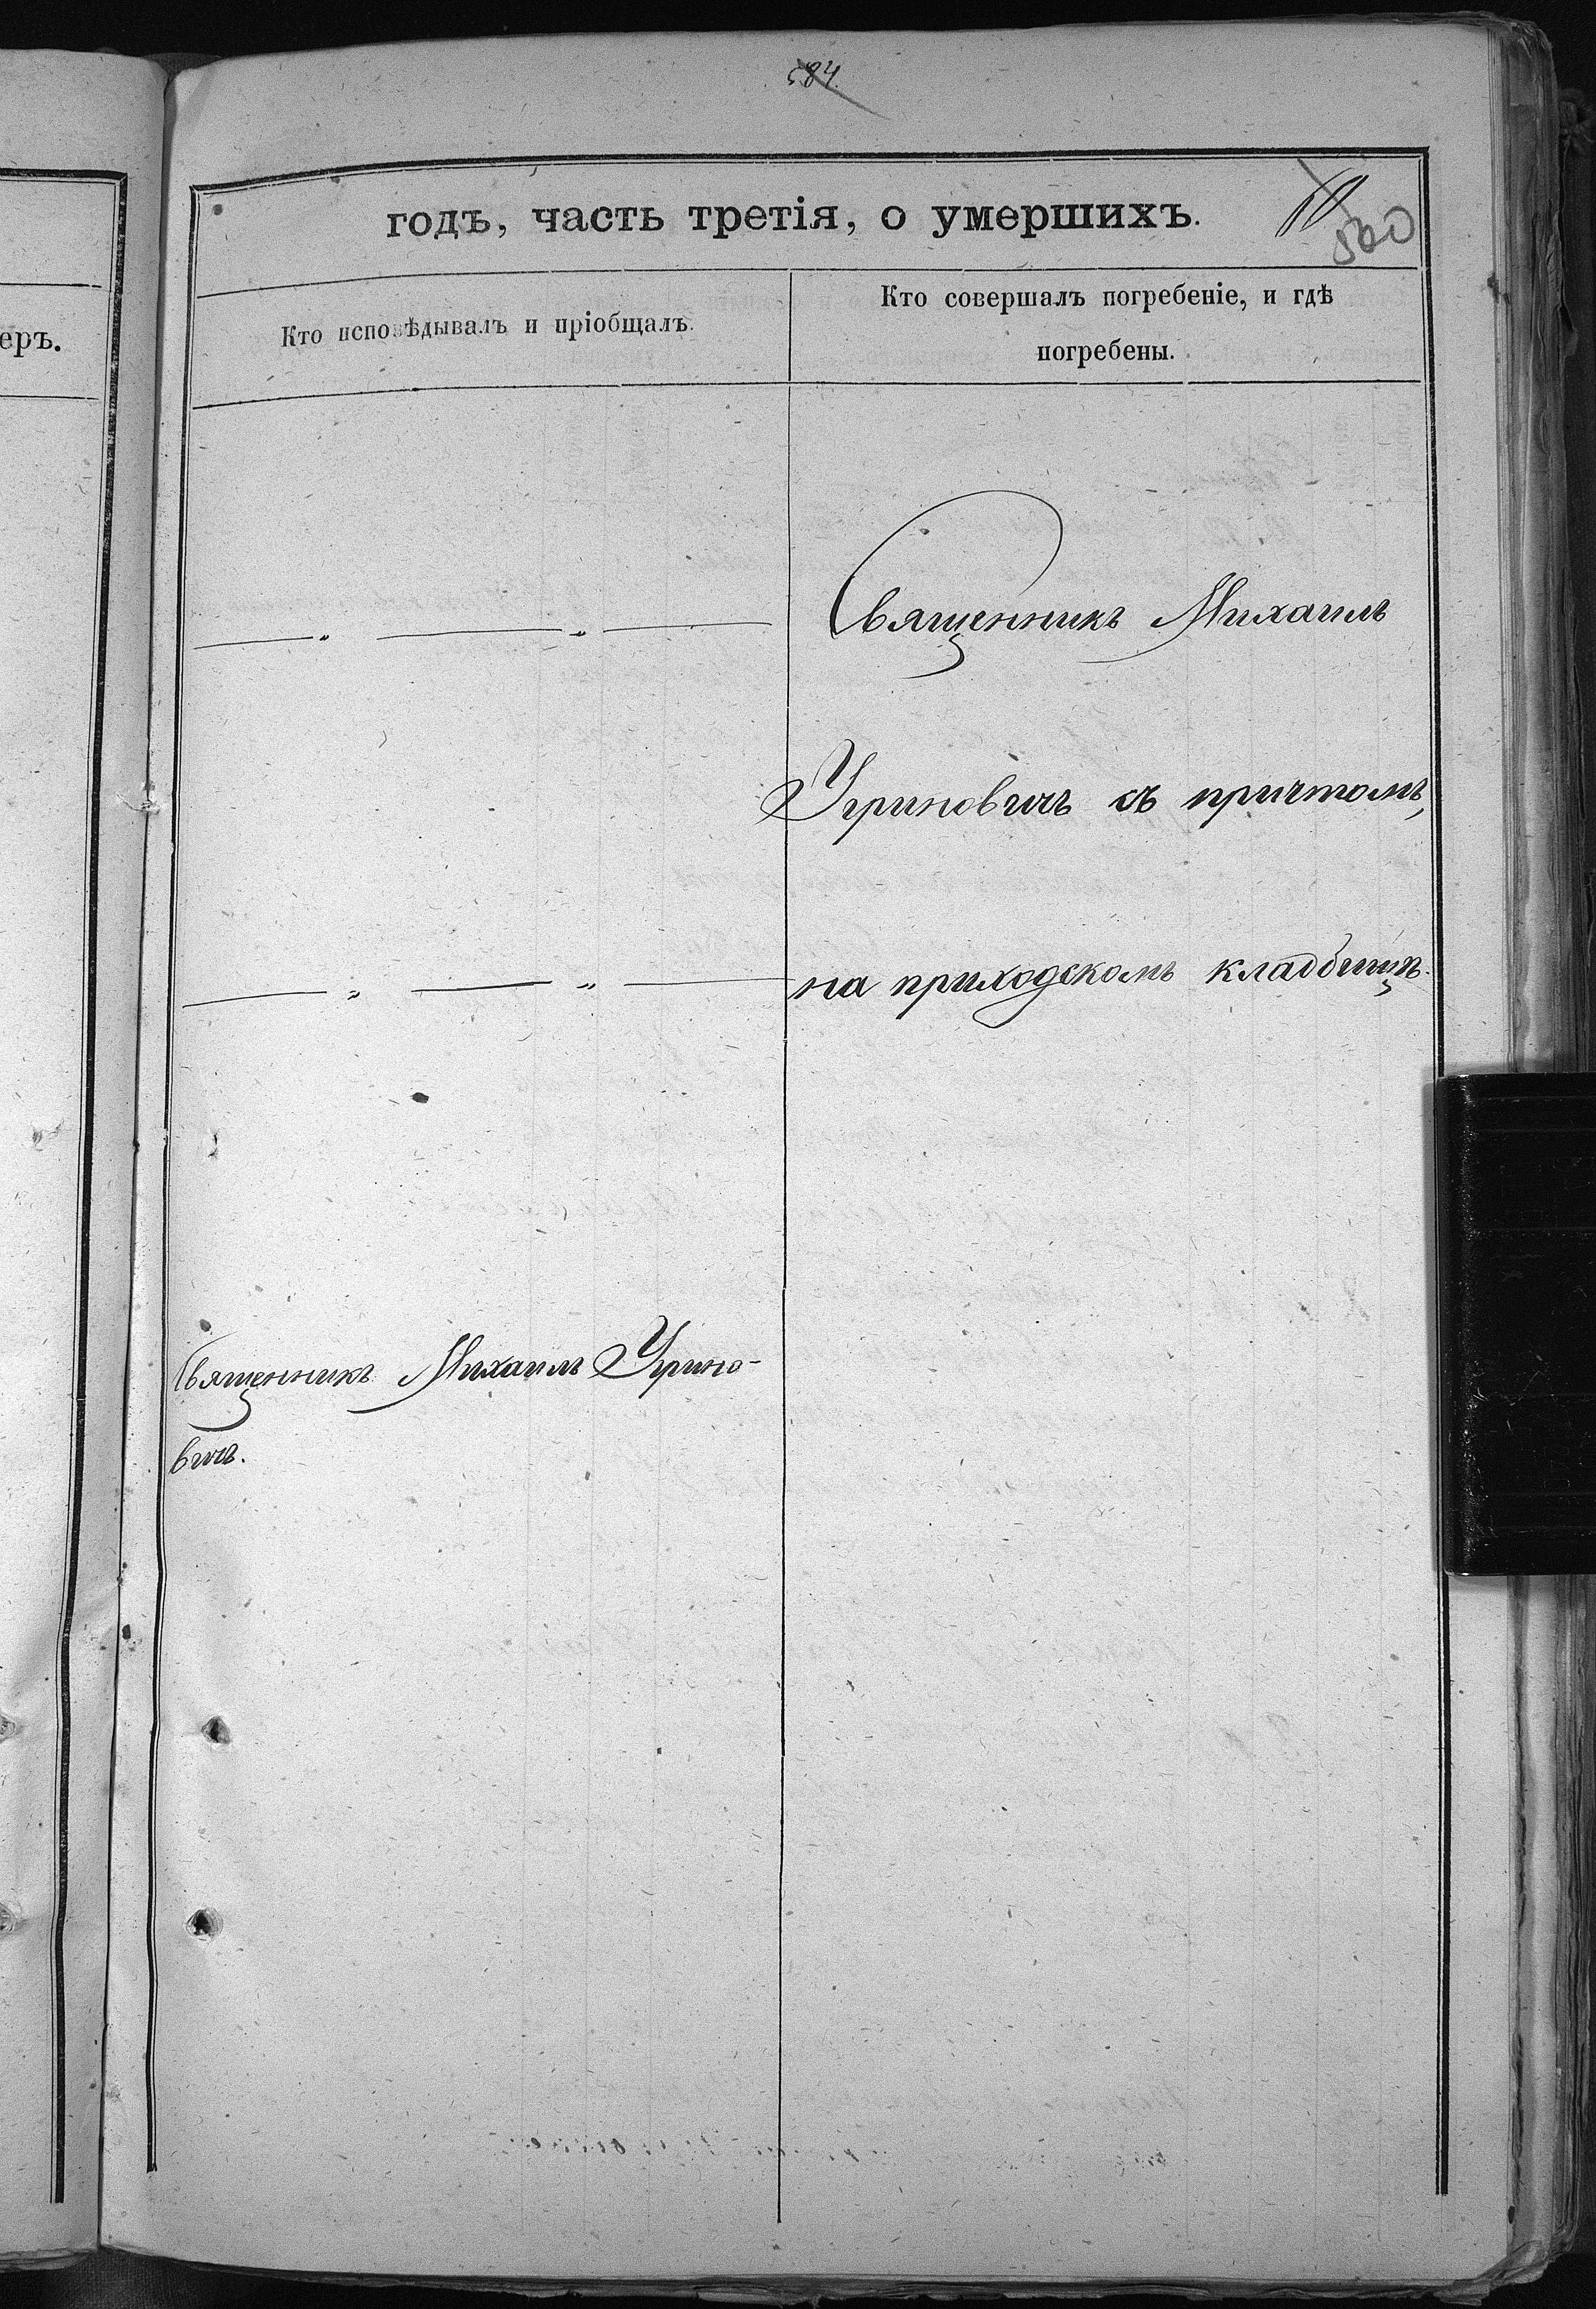 584.
годъ, часть третія, о умершихъ.
560
еръ.
Кто исповѣдывалъ и пріобщалъ.
Кто совершалъ погребеніе, и гдѣ
погребены.
Священникъ Михаилъ
Угриновичъ съ причтомъ,
на приходскомъ кладбищѣ.
Священникъ Михаилъ Угрино-
вичъ.